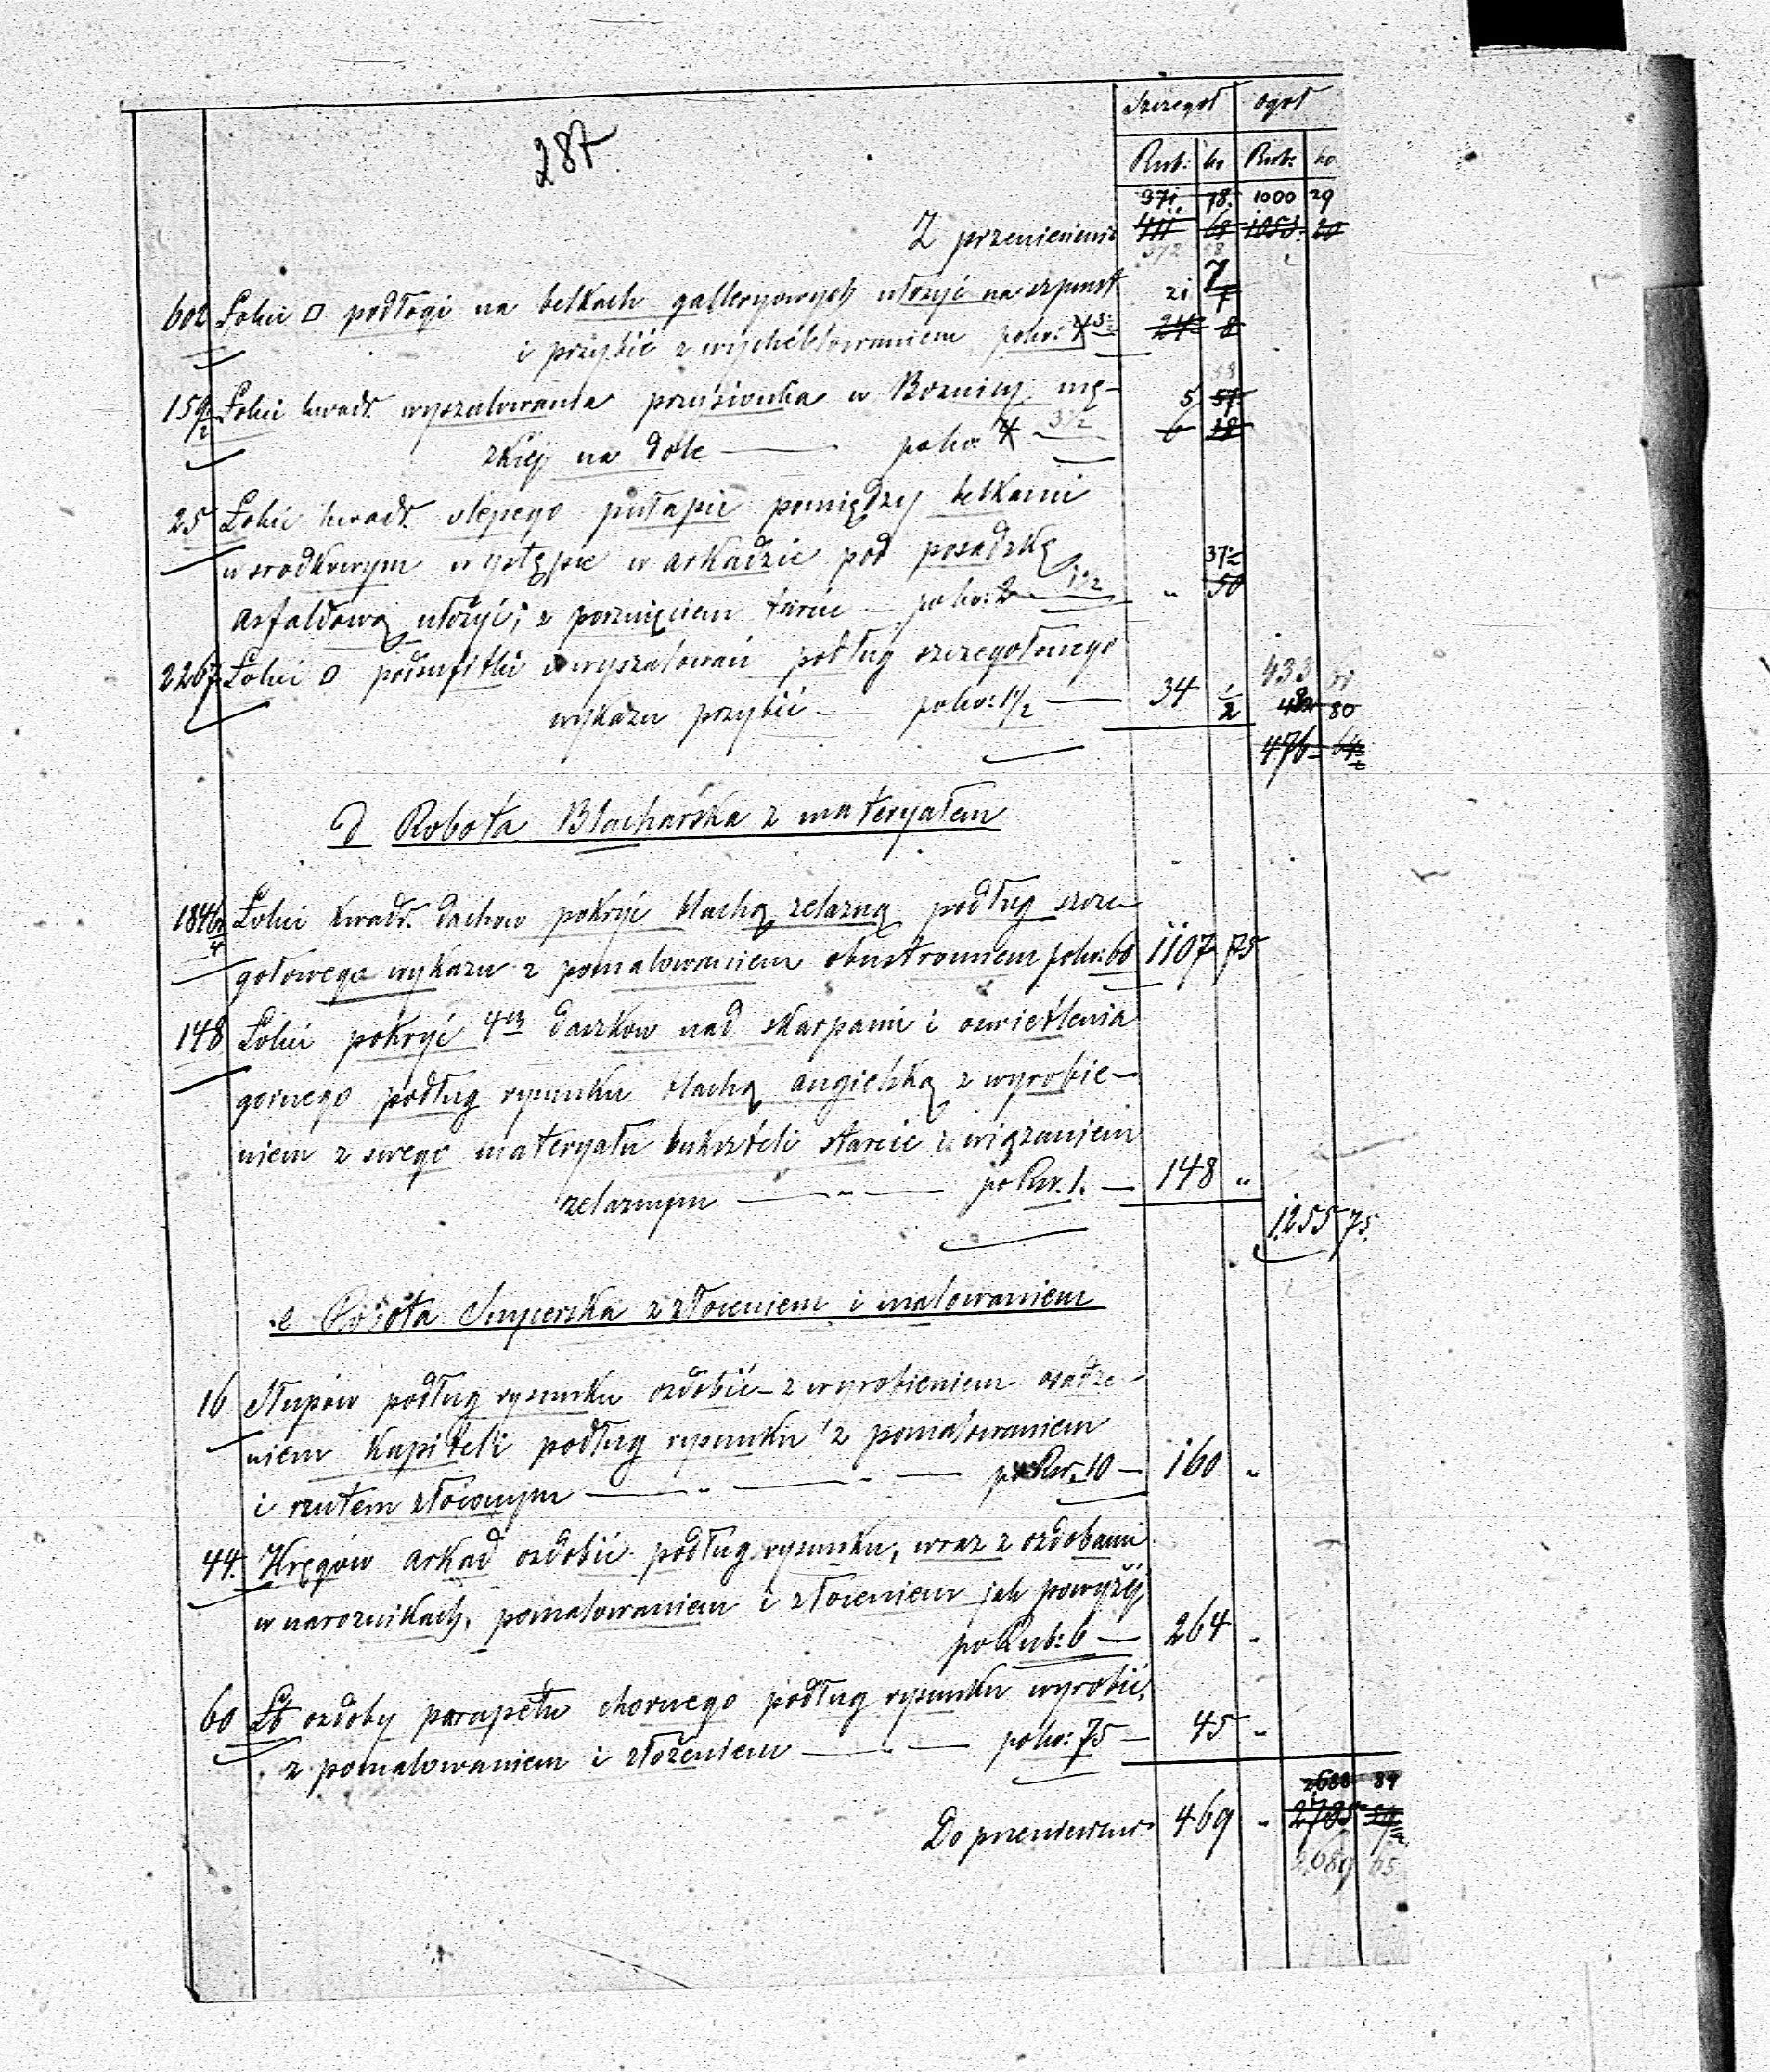 Szczegół ogół
287
Rub: ko Rub: ko
371. 78. 1000 29
Z przeniesienia 411 68 1053. 20
372 58
602 Łokci □ podłogi na belkach galleryowych ułożyć na szpunt 21 7
i przybić z wyhéblowaniem poko: 4 3½ 24 8
159½ Łokci kwadr. wyszalowania przusionka w Boznicy mę- 5 57
zkiej na dole — poko: 4 3½ 6 38
25 Łokci kwadr. slepego pułapu pomiędzy belkami
w srodkowym występie w arkadzie pod posadzkę 37½
asfaldową ułożyć, z porznięciem tarcic — poko: 2 1½ " 50
2267 Łokci □ podsufitki i wyszalowań podług szczegołowego 433 51
wykazu przybić — poko: 1½ — 34 ½ 80
476 64½
d Robota Blacharska z materyałem
1846¼ Łokci kwadr. dachow pokryć blachą zelazną podług szcze
gołowego wykazu z pomalowaniem obustronniem poko: 60 1107 75
148 Łokci pokryć 4ch daszkow nad skarpami i oswietlenia
gornego podług rysunku blachą angielską z wyrobie-
niem z swego materyału buksztéli starcic i wiązaniem
zelaznym — " — po Rsr. 1. — 148 "
1255 75.
e Robota Snycerska z złoceniem i malowaniem
16 Słupów podług rysunku ozdobić z wyrobieniem osadze-
niem kapiteli podług rysunku z pomalowaniem
i rzutem złoconym — " — po Rsr. 10 — 160 "
44. Kręgów arkad ozdobić podług rysunku, wraz z ozdobami
w naroznikach, pomalowaniem i złoceniem jak powyżéj
po Rub: 6 — 264 "
60 Łó ozdoby parapetu chornego podług rysunku wyrobić,
z pomalowaniem i złożeniem — " — poko: 75 — 45 "
2688 89
Do przeniesienia 469 " 2785 59½
2689 65